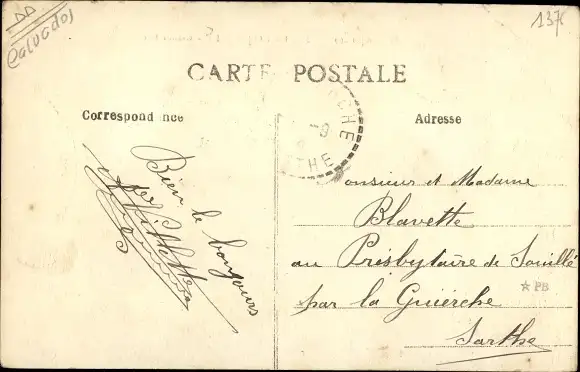 DD
Calvados
137
CARTE POSTALE
Correspondance
Adresse
CHE
-9
THE
Bien le bonjours
Monsieur et Madame
Blavette
au Presbytaire de Souillé
par la Guierche
Sarthe
☆ PB